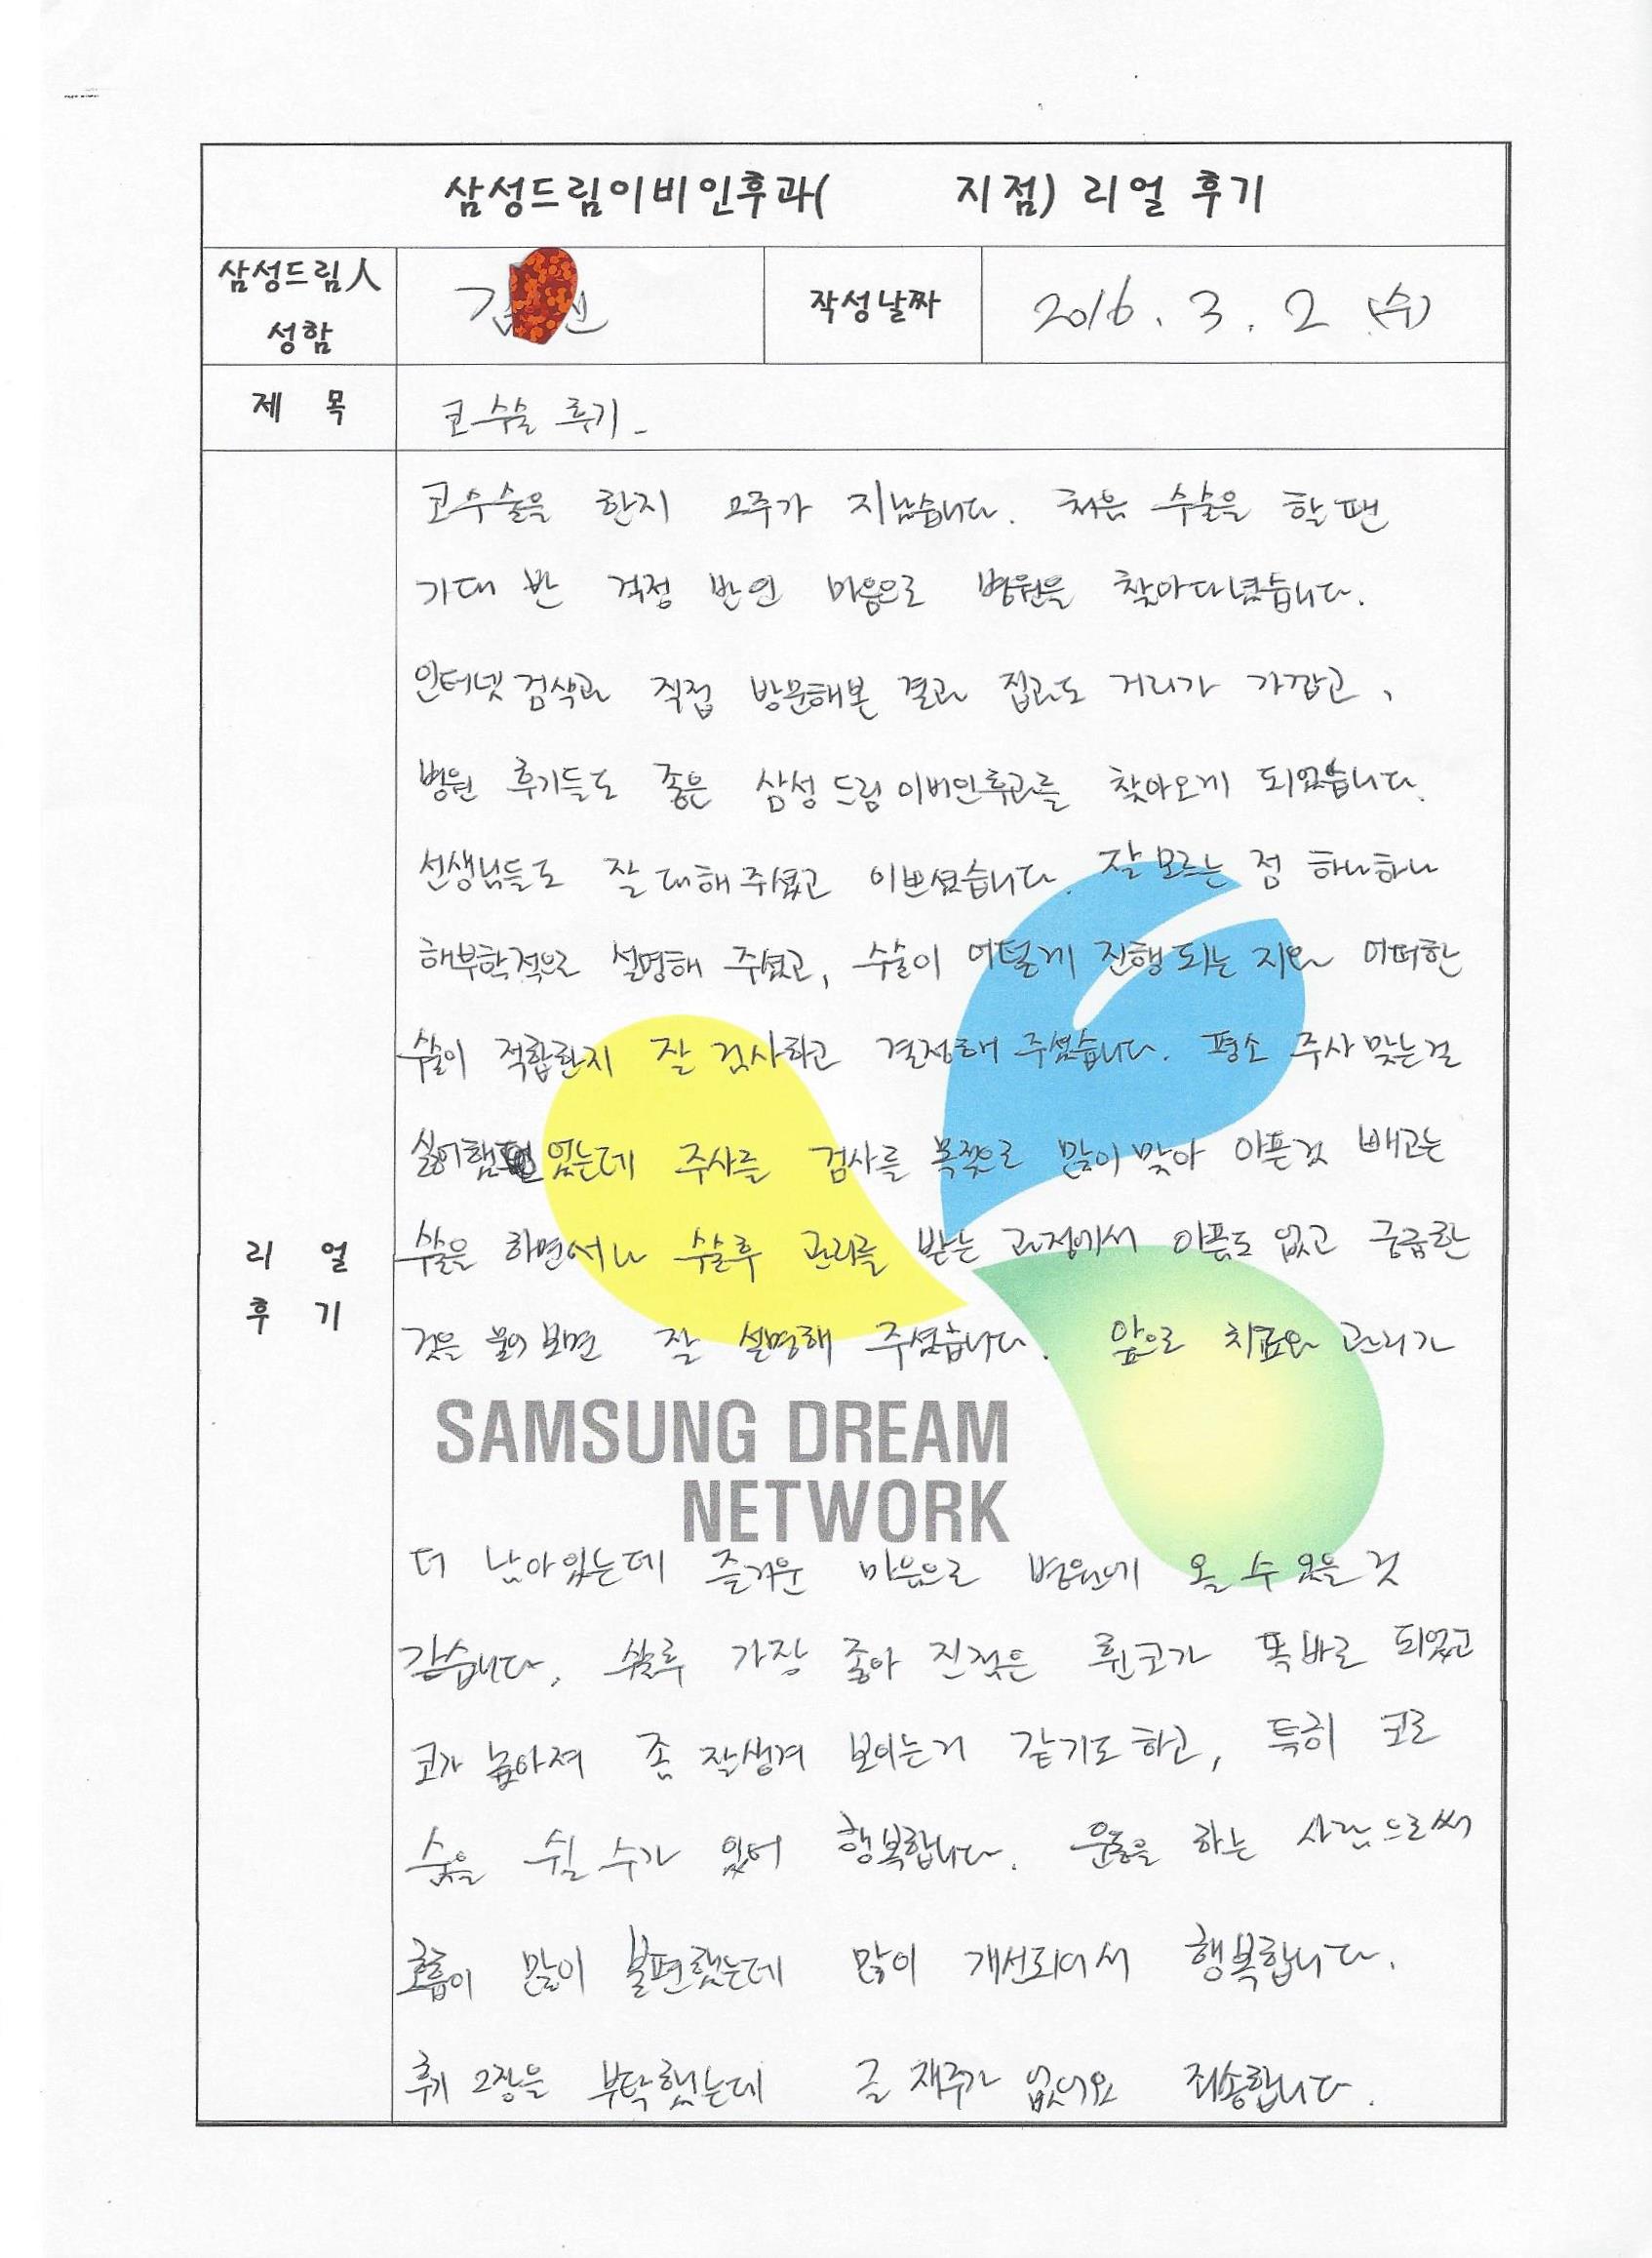 삼성드림이비인후과( 지점) 리얼 후기
삼성드림人
성함
작성날짜
2016. 3. 2 (수)
제 목
코수술 후기-
코수술을 한지 2주가 지났습니다. 처음 수술을 할땐
기대 반 걱정 반인 마음으로 병원을 찾아다녔습니다.
인터넷 검색과 직접 방문해본 결과 집과도 거리가 가깝고,
병원 후기들도 좋은 삼성드림이비인후과를 찾아오게 되었습니다.
선생님들도 잘 대해주셨고 이쁘셨습니다. 잘 모르는 점 하나하나
해부학적으로 설명해 주셨고, 수술이 어떻게 진행되는 지와 어떠한
수술이 적합한지 잘 검사하고 결정해 주셨습니다. 평소 주사 맞는걸
있는데 주사를 검사를 목적으로 많이 맞아 아픈것 빼고는
수술을 하면서나 수술후 관리를 받는 과정에서 아픔도 없고 궁금한
것은 물어 보면 잘 설명해 주셨습니다. 앞으로 치료와 관리가
SAMSUNG DREAM
NETWORK
더 남아있는데 즐거운 마음으로 병원에 올 수 있을 것
같습니다. 수술후 가장 좋아 진점은 휜코가 똑바로 되었고
코가 높아져 좀 잘생겨 보이는거 같기도하고, 특히 코로
숨을 쉴 수가 있어 행복합니다. 운동을 하는 사람으로써
호흡이 많이 불편했는데 많이 개선되어서 행복합니다.
후기 2장을 부탁했는데 글 재주가 없어요 죄송합니다.
리 얼
후 기